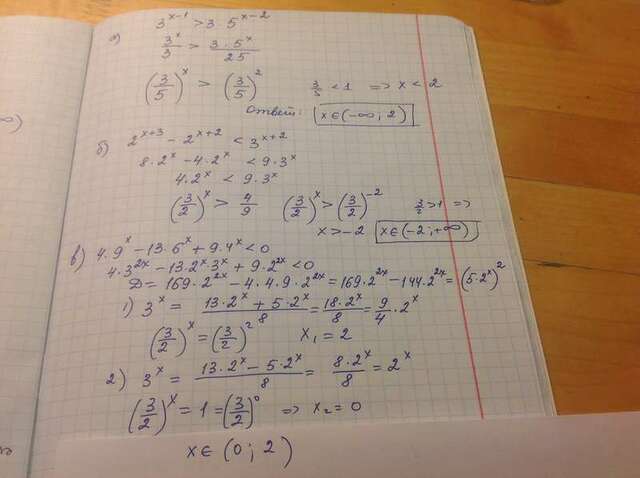 а) 3^(x-1) > 3·5^(x-2)
3^x/3 > 3·5^x/25
(3/5)^x > (3/5)^2    3/5 < 1 => x < 2
Ответ: x∈(-∞; 2)
б) 2^(x+3) - 2^(x+2) < 3^(x+2)
8·2^x - 4·2^x < 9·3^x
4·2^x < 9·3^x
(3/2)^x > 4/9    (3/2)^x > (3/2)^(-2)    3/2 > 1 =>
x > -2    x∈(-2; +∞)
в) 4·9^x - 13·6^x + 9·4^x < 0
4·3^(2x) - 13·2^x·3^x + 9·2^(2x) < 0
D = 169·2^(2x) - 4·4·9·2^(2x) = 169·2^(2x) - 144·2^(2x) = (5·2^x)^2
1) 3^x = (13·2^x + 5·2^x)/8 = 18·2^x/8 = 9/4·2^x
(3/2)^x = (3/2)^2    x₁ = 2
2) 3^x = (13·2^x - 5·2^x)/8 = 8·2^x/8 = 2^x
(3/2)^x = 1 = (3/2)^0 => x₂ = 0
x∈(0; 2)